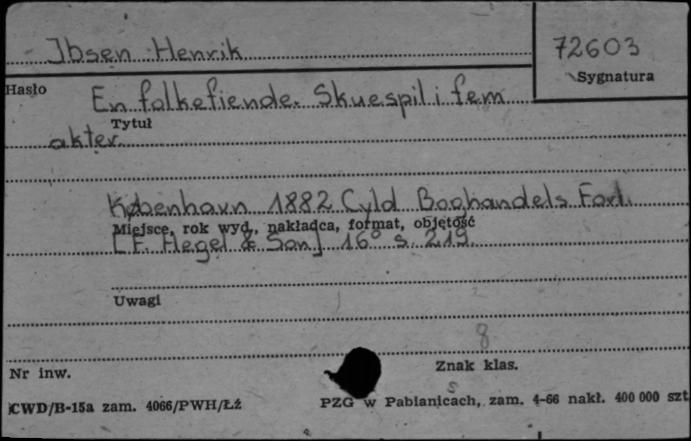 Ibsen Henrik
72603
Sygnatura
Hasło
En folkefiende. Skuespil i fem
Tytuł
akter.
København 1882 Cyld Boghandels Forl.
Miejsce, rok wyd., nakładca, format, objętość
[F. Hegel & Son] 16° s. 219
Uwagi
8
Nr inw.
Znak klas.
CWD/B-15a zam. 4066/PWH/Łż
PZG w Pabianicach, zam. 4-66 nakł. 400 000 szt